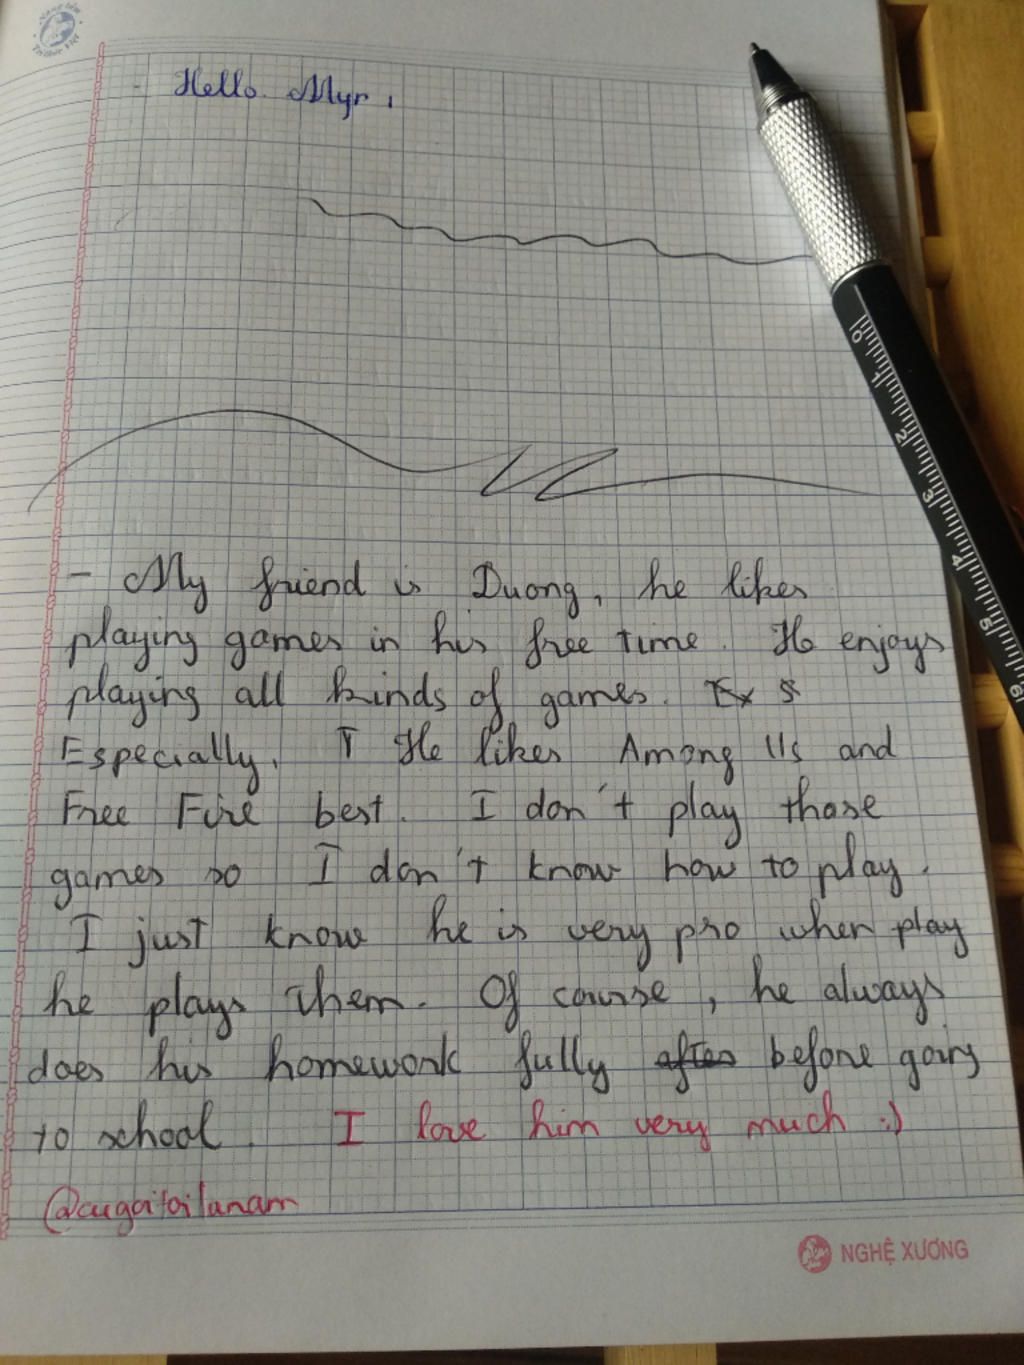 Hello Myr,
- My friend is Duong, he likes
playing games in his free time. He enjoys
playing all kinds of games. Ex S
Especially, T He likes Among Us and
Free Fire best. I don't play those
games so I don't know how to play.
I just know he is very pro when play
he plays them. Of course, he always
does his homework fully after before going
to school. I love him very much :)
@cugaitoilanam
NGHỆ XƯƠNG
0 1 2 3 4 5 6